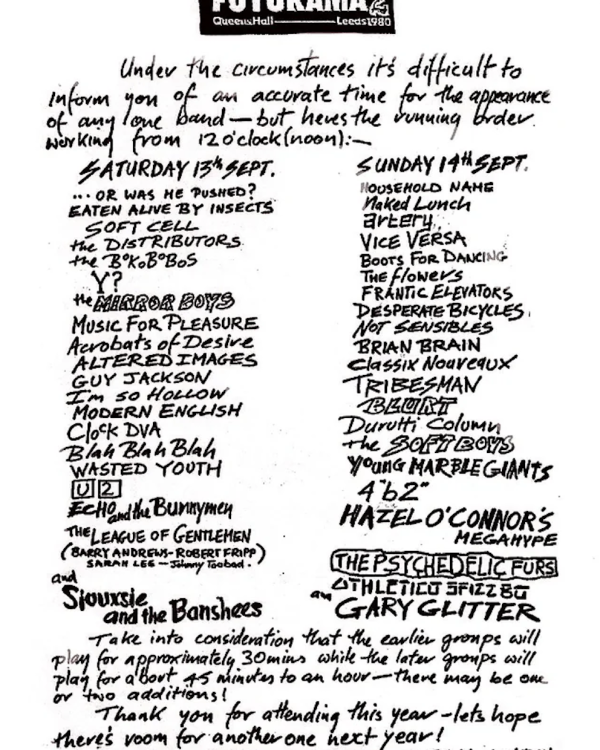 FUTURAMA 2
Queens Hall Leeds 1980
Under the circumstances it's difficult to
inform you of an accurate time for the appearance
of any one band — but heres the running order
working from 12 o'clock (noon):—
SATURDAY 13th SEPT.
... OR WAS HE PUSHED?
EATEN ALIVE BY INSECTS
SOFT CELL
the DISTRIBUTORS
the BoKoBoBoS
Y?
the MIRROR BOYS
MUSIC FOR PLEASURE
Acrobats of Desire
ALTERED IMAGES
GUY JACKSON
I'm so HOLLOW
MODERN ENGLISH
Clock DVA
Blah Blah Blah
WASTED YOUTH
U2
ECHO and the Bunnymen
THE LEAGUE OF GENTLEMEN
(BARRY ANDREWS - ROBERT FRIPP)
SARAH LEE - Johnny Toobad.
and
Siouxsie
and the Banshees
SUNDAY 14th SEPT.
HOUSEHOLD NAME
Naked Lunch
artery.
VICE VERSA
BOOTS FOR DANCING
THE flowers
FRANTIC ELEVATORS
DESPERATE BICYCLES.
NOT SENSIBLES
BRIAN BRAIN
Classix Nouveaux
TRIBESMAN
BLURT
Durutti Column
the SOFT BOYS
YOUNG MARBLE GIANTS
4"b2"
HAZEL O'CONNOR'S
MEGAHYPE
THE PSYCHEDELIC FURS
ATHLETICO SPIZZ 80
GARY GLITTER
Take into consideration that the earlier groups will
play for approximately 30mins while the later groups will
play for about 45 minutes to an hour — there may be one
or two additions!
Thank you for attending this year - lets hope
there's room for another one next year!